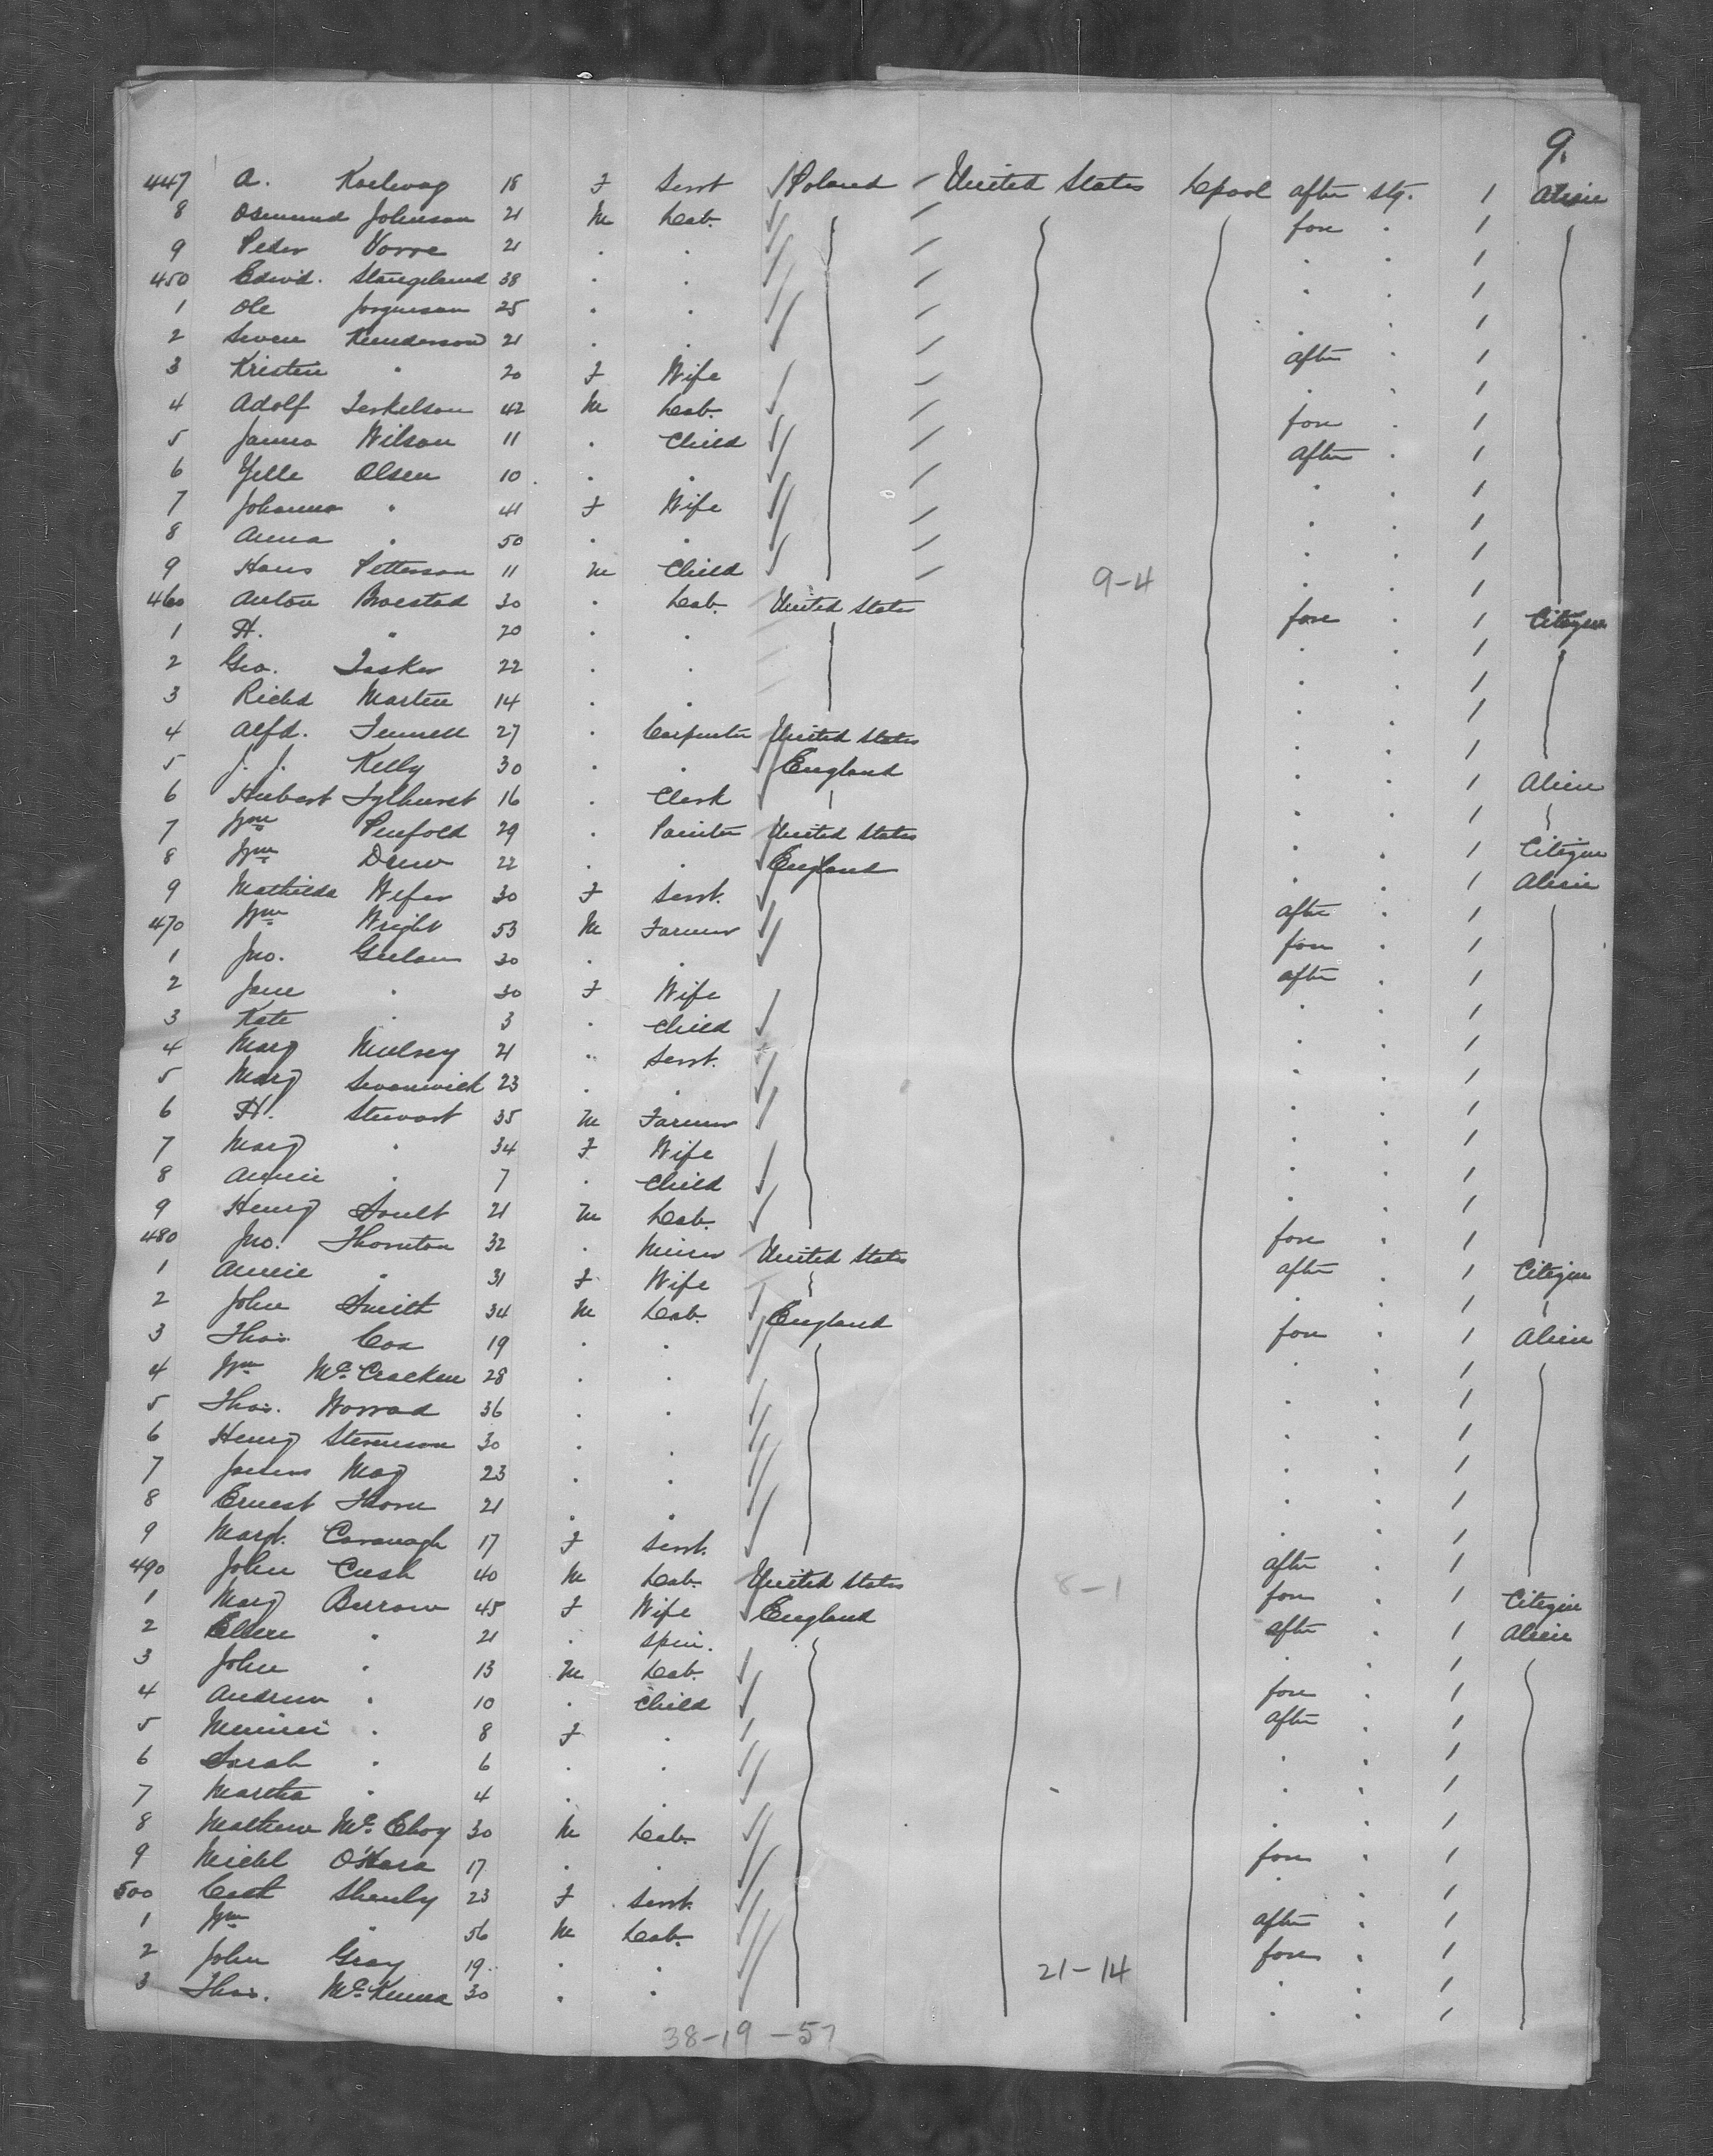 9.
447 A. 18 F Servt Poland United States Lpool after stg. 1 Alien
8 Osmund Johnson 21 M Lab. fore . 1
9 Peder Vorre 21 . . . . 1
450 Edwd. Stangeland 38 . . . . 1
1 Ole Jorgensen 25 . . . . 1
2 Seven Kunderson 21 . . after . 1
3 Kristin " 20 F Wife . . 1
4 Adolf Terkelson 42 M Lab. fore . 1
5 Wilson 11 . Child after . 1
6 Olsen 10 . . . . 1
7 Johanna " 41 F Wife . . 1
8 Anna " 50 . . . . 1
9 Hans Petterson 11 M Child . . 1
9-4
460 Anton Broestad 30 . Lab. United States fore . 1 Citizen
1 H. " 20 . . . . 1
2 Geo. Tasker 22 . . . . 1
3 Richd Martin 14 . . . . 1
4 Alfd. 27 . Carpenter United States . . 1
5 J. J. Kelly 30 . . England . . 1 Alien
6 Hubert 16 . Clerk . . 1
7 Wm Penfold 29 . Painter United States . . 1 Citizen
8 Wm Drew 22 . . England . . 1 Alien
9 Mathilda 30 F Servt. after . 1
470 Wm Wright 53 M Farmer fore . 1
1 Jno. 30 . . after . 1
2 Jane " 30 F Wife . . 1
3 Kate " 3 . Child . . 1
4 Mary 21 " Servt. . . 1
5 Mary Swanwick 23 . . . . 1
6 H. Stewart 35 M Farmer . . 1
7 Mary " 34 F Wife . . 1
8 Annie " 7 . Child . . 1
9 Henry Soult 21 M Lab. fore . 1
480 Jno. Thornton 32 . Miner United States after . 1 Citizen
1 Annie " 31 F Wife . . 1
2 John Smith 34 M Lab. England fore . 1 Alien
3 Thos. Cox 19 . . . . 1
4 Wm McCracken 28 . . . . 1
5 Thos. Worrad 36 . . . . 1
6 Henry Stevenson 30 . . . . 1
7 James May 23 . . . . 1
8 Ernest Thorn 21 . . . . 1
9 Margt. Cavanagh 17 F Servt. after . 1
490 John Cush 40 M Lab. United States 8-1 fore . 1 Citizen
1 Mary Burrow 45 F Wife England after . 1 Alien
2 Ellen " 21 . Spin. . . 1
3 John " 13 M Lab. fore . 1
4 Andrew " 10 . Child after . 1
5 Minnie " 8 F . . . 1
6 Sarah " 6 . . . . 1
7 Martha " 4 . . . . 1
8 Mathew McElroy 30 M Lab. fore . 1
9 Michl O'Hara 17 . . . . 1
500 Cath Shenly 23 F Servt. after . 1
1 Wm " 56 M Lab. fore . 1
2 John Gray 19 . . . . 1
3 Thos. McKenna 30 . . . . 1
21-14
38-19-57